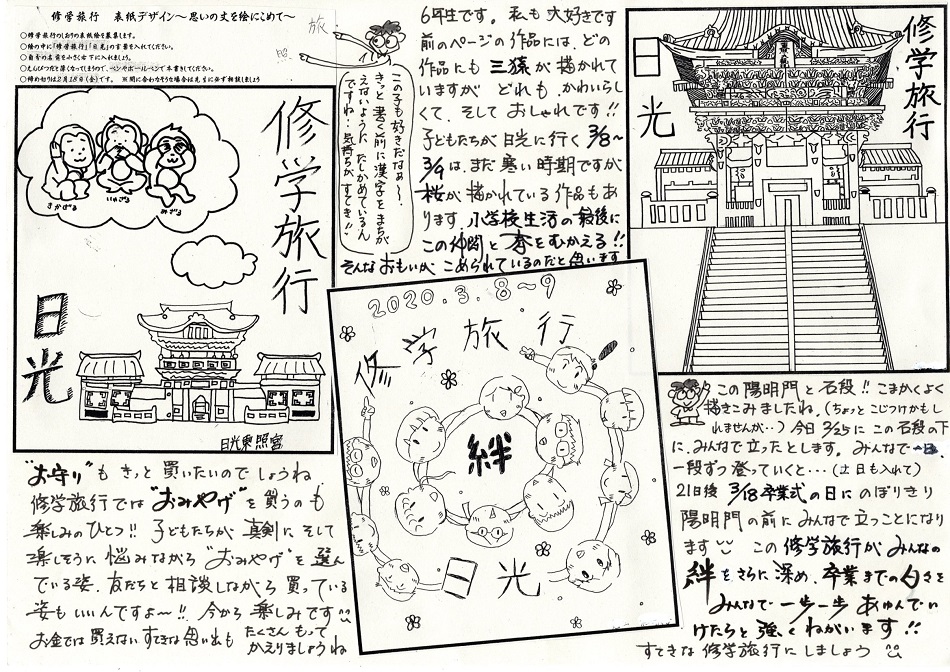 修学旅行 表紙デザイン～思いの丈を絵にこめて～
○修学旅行のしおりの表紙絵を募集します。
○絵の中に「修学旅行」「日光」の言葉を入れてください。
○自分の名前を小さく右下に入れましょう。
○えんぴつだと薄くなってしまうので、ペンやボールペンで本書きしてください。
○締め切りは2月28日(金)です。 ※間に合わなそうな場合は先生に必ず相談しましょう
修学旅行
きかざる
いわざる
みざる
日光
日光東照宮
旅
照
この子も好きだなぁ～。
きっと書く前に漢字をまちが
えないようにたしかめているん
ですね。気持ちがすてき!!
6年生です。私も大好きです
前のページの作品には、どの
作品にも三猿が描かれて
いますが どれも、かわいらし
くて、そしておしゃれです!!
子どもたちが日光に行く3/8～
3/9は、まだ寒い時期ですが
桜が描かれている作品もあ
ります。小学校生活の最後に
この仲間と春をむかえる!!
そんなおもいが、こめられているのだと思います
修学旅行
日光
2020.3.8～9
修学旅行
絆
日光
"お守り"もきっと買いたいのでしょうね
修学旅行では"おみやげ"を買うのも
楽しみのひとつ!! 子どもたちが真剣に、そして
楽しそうに悩みながら"おみやげ"を選ん
でいる姿、友だちと相談しながら買っている
姿もいいんですよ～!! 今から楽しみです
お金では買えないすてきな思い出も たくさんもって
かえりましょうね
この陽明門と石段!! こまかくよく
描きこみましたね。(ちょっとこじつけかもし
れませんが…) 今日2/25にこの石段の下
に、みんなで立ったとします。みんなで一日、
一段ずつ登っていくと…(土日も入れて)
21日後 3/18卒業式の日にのぼりきり
陽明門の前にみんなで立つことになり
ます この修学旅行がみんなの
絆をさらに深め、卒業までの日々を
みんなで一歩一歩あゆんでい
けたらと強くねがいます!!
すてきな修学旅行にしましょう